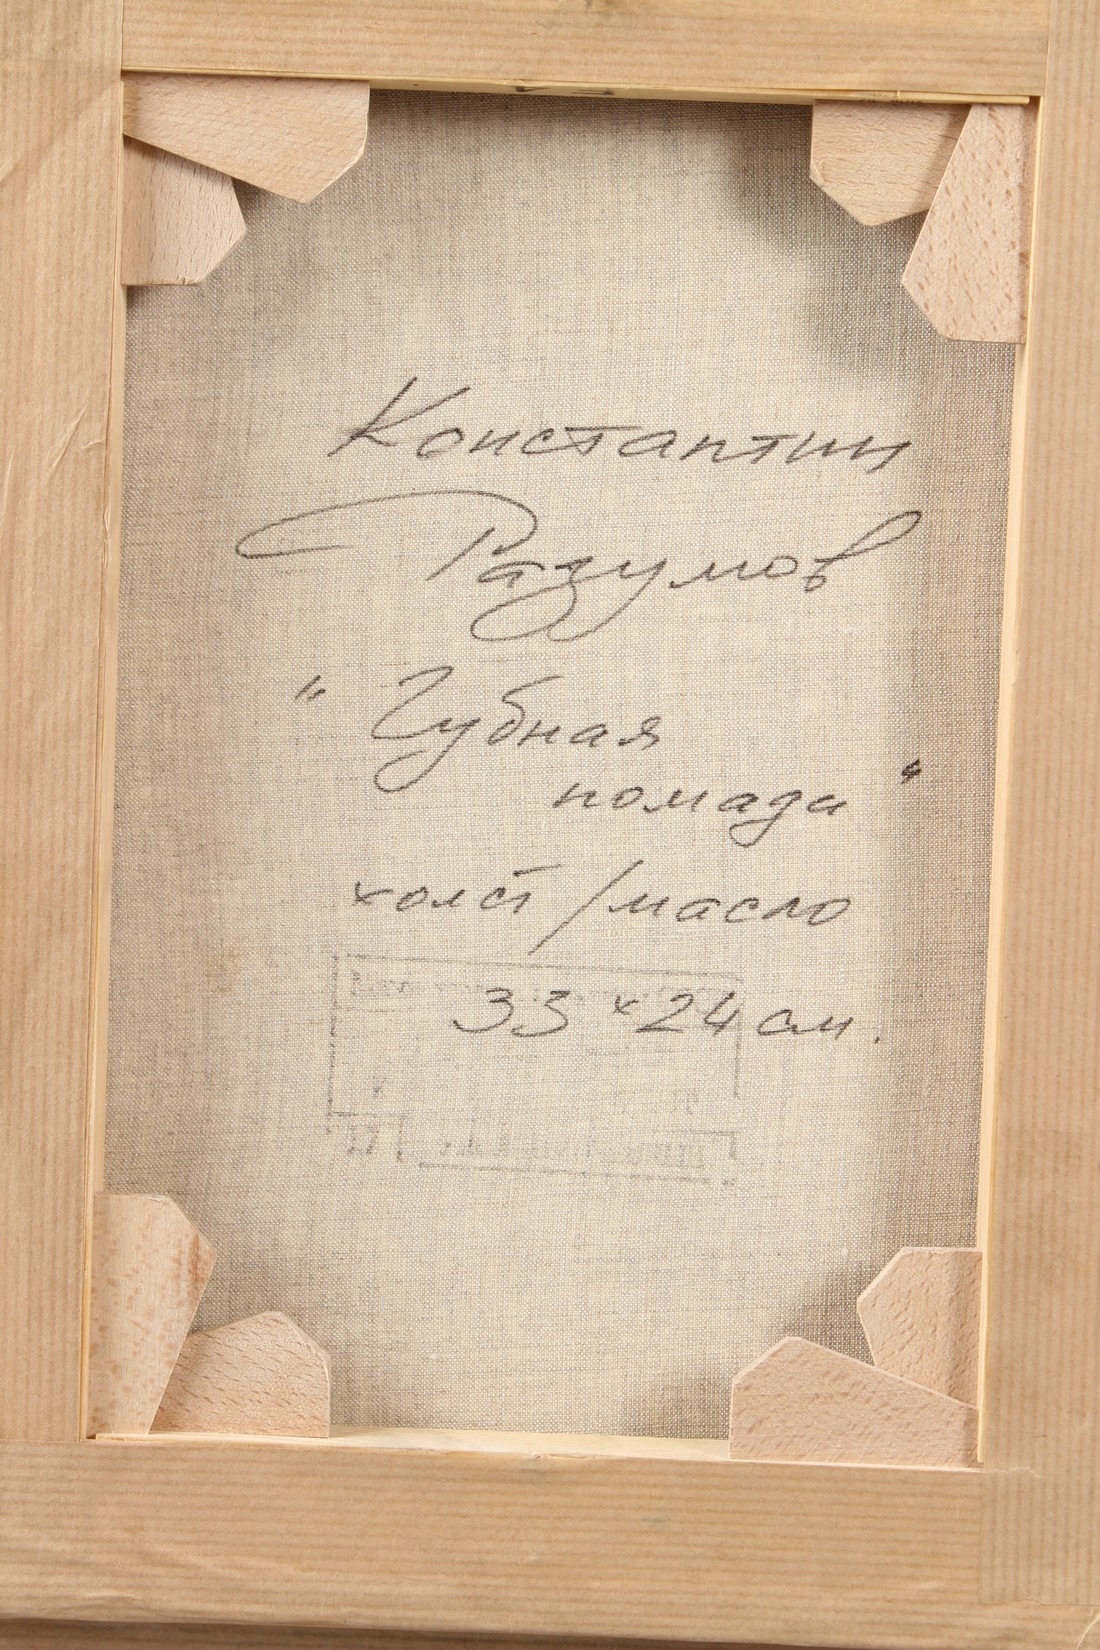 Константин
Разумов
"Губная
помада"
холст/масло
33 x 24 см.